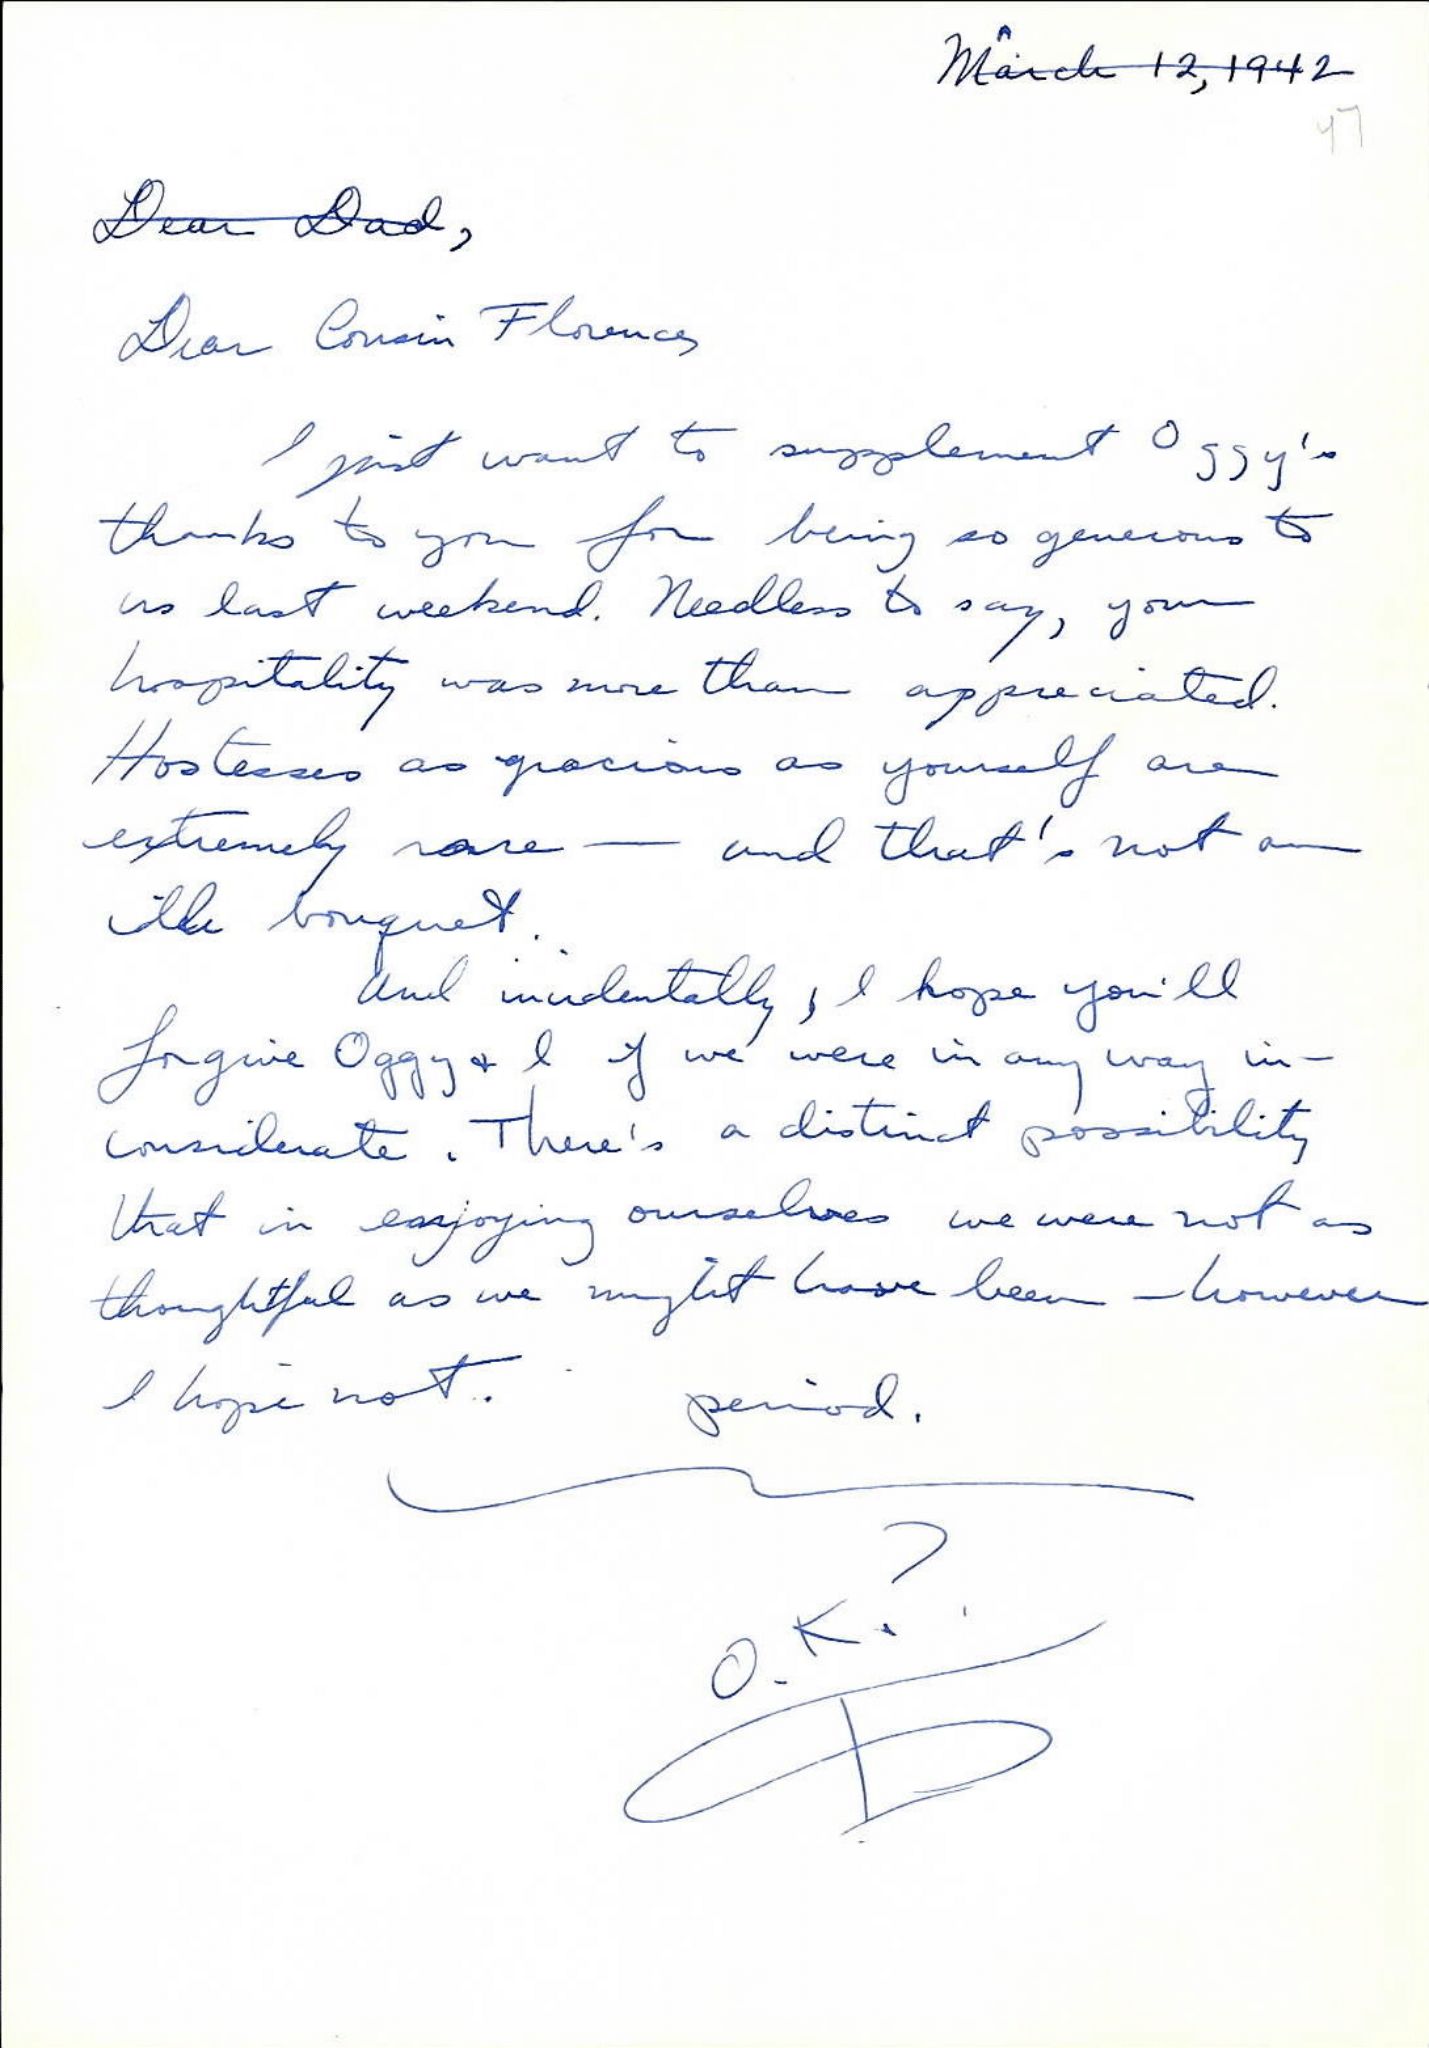 March 12, 1942
47
Dear Dad,
Dear Cousin Florence,
I just want to supplement Oggy's
thanks to you for being so generous to
us last weekend. Needless to say, your
hospitality was more than appreciated.
Hostesses as gracious as yourself are
extremely rare — and that's not an
idle bouquet.
And incidentally, I hope you'll
forgive Oggy & I if we were in any way in-
considerate. There's a distinct possibility
that in enjoying ourselves we were not as
thoughtful as we might have been – however
I hope not. period.
O.K.?